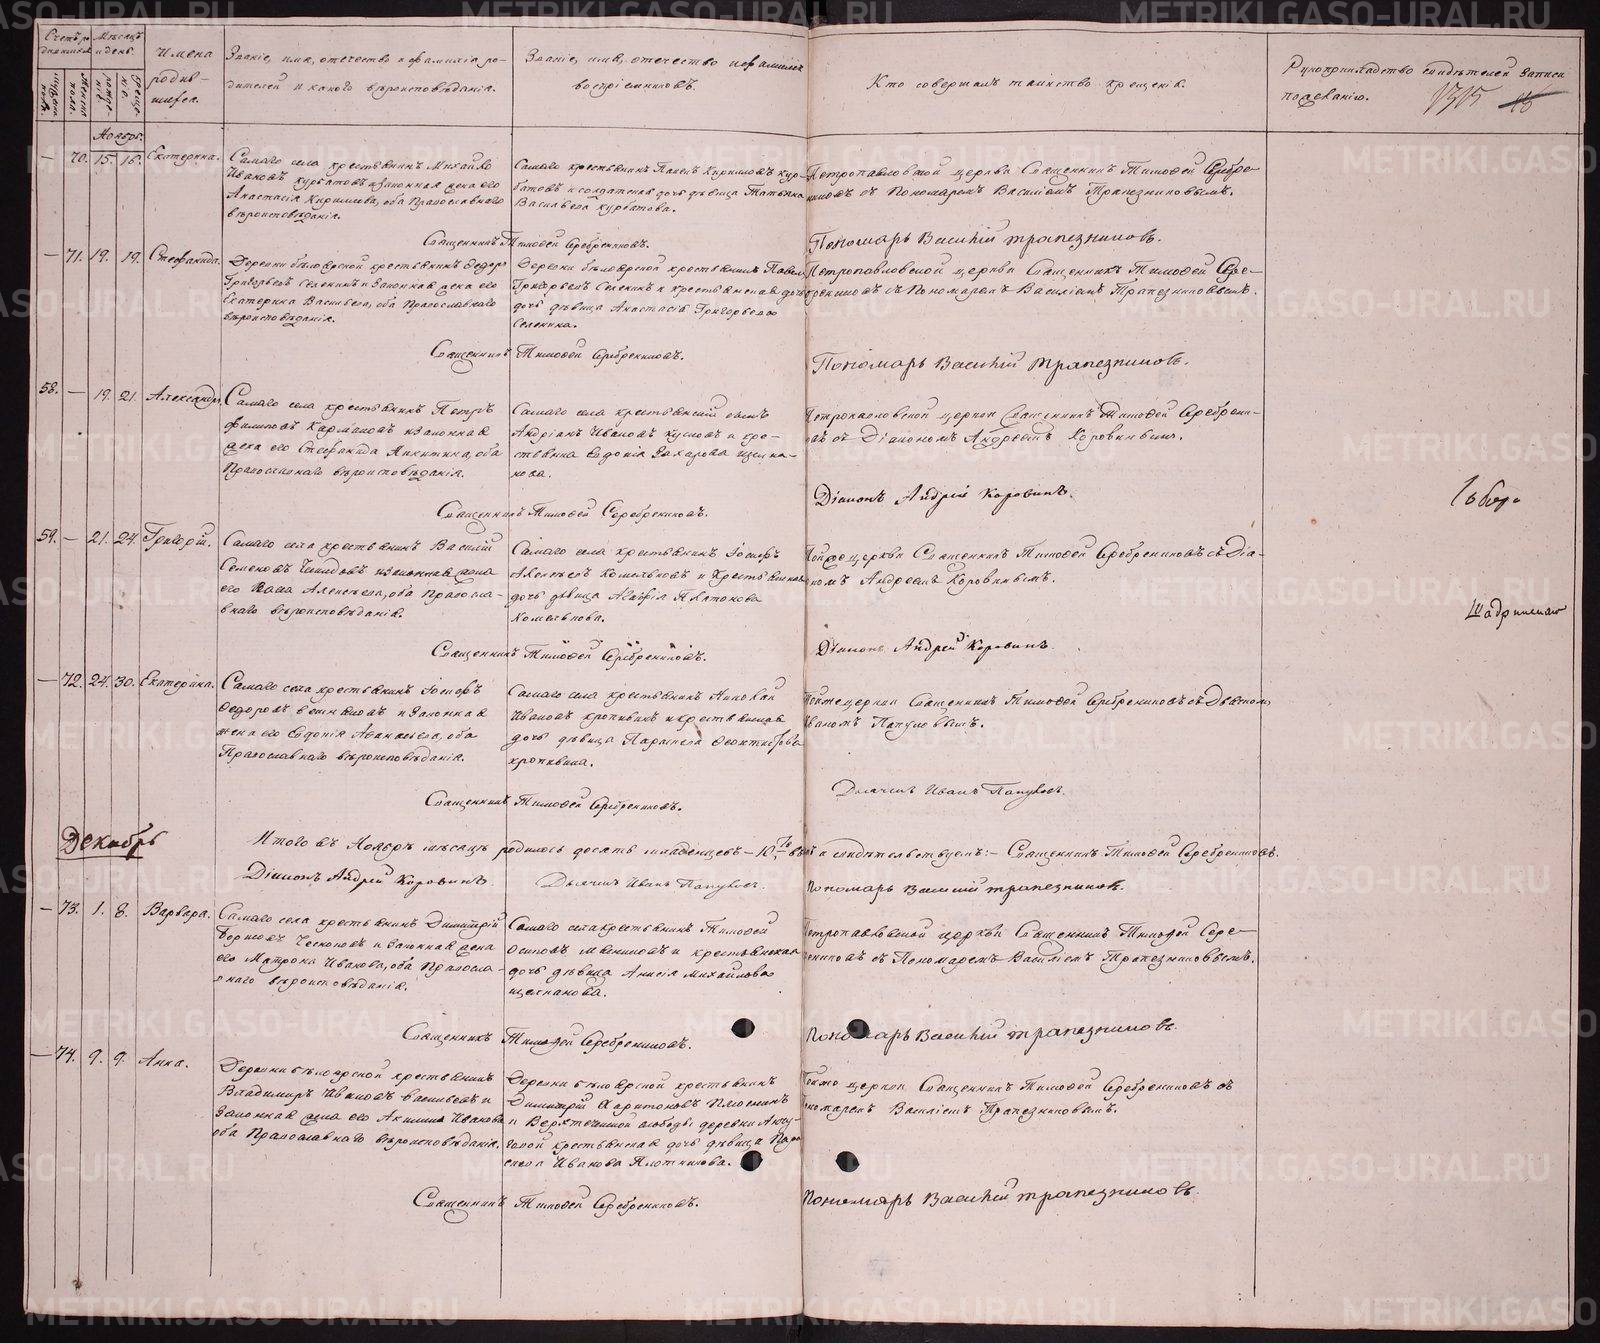 Счетъ ро-
дившихся
Мѣсяцъ
и день.
Имена
родив-
шихся.
Званіе, имя, отечество и фамилія ро-
дителей и какого вѣроисповѣданія.
Званіе, имя, отечество и фамилія
воспріемниковъ.
Кто совершалъ таинство крещенія.
Рукоприкладство свидѣтелей записи
по желанію.
1315
Ноябрь.
— 70. 15. 16. Екатерина.
Самаго села крестьянинъ Михайло
Ивановъ Курбатовъ и законная жена его
Анастасія Кирилова, оба Православнаго
вѣроисповѣданія.
Самаго крестьянинъ Павелъ Кириловъ Кур-
батовъ и солдатская дочь дѣвица Татьяна
Васильева Курбатова.
Петропавловской церкви Священникъ Тимофей Серебре-
никовъ съ Пономаремъ Василіемъ Трапезниковымъ.
Священникъ Тимофей Серебрениковъ.
Пономарь Василій Трапезниковъ.
— 71. 19. 19. Стефанида.
Деревни Бѣлоярской крестьянинъ Федоръ
Григорьевъ Селенинъ и Законная жена его
Екатерина Васильева, оба Православнаго
вѣроисповѣданія.
Деревни Бѣлоярской крестьянинъ Павелъ
Григорьевъ Селенинъ и крестьянская дочь
дочь дѣвица Анастасія Григорьева
Селенина.
Петропавловской церкви Священникъ Тимофей Сере-
брениковъ съ Пономаремъ Василіемъ Трапезниковымъ.
Священникъ Тимофей Серебрениковъ.
Пономарь Василій Трапезниковъ.
58. — 19. 21. Александръ.
Самаго села крестьянинъ Петръ
Филиповъ Кармановъ и Законная
жена его Стефанида Никитина, оба
Православнаго вѣроисповѣданія.
Самаго села крестьянскій сынъ
Андріанъ Ивановъ и кре-
стьянка Евдокія Захарова
нова.
Петропавловской церкви Священникъ Тимофей Серебрени-
въ съ Діакономъ Андреемъ Коровинымъ.
Священникъ Тимофей Серебрениковъ.
Діаконъ Андрей Коровинъ.
59. — 21. 24. Григорій.
Самаго села крестьянинъ Василій
Семеновъ и законная жена
его Алексѣева, оба Правосла-
внаго вѣроисповѣданія.
Самаго села крестьянинъ Іосифъ
Комельковъ и Крестьянская
дочь дѣвица Агафія Платонова
Комелькова.
Той же церкви Священникъ Тимофей Серебрениковъ съ Діа-
кономъ Андреемъ Коровинымъ.
Священникъ Тимофей Серебрениковъ.
Діаконъ Андрей Коровинъ.
— 72. 24. 30. Екатерина.
Самаго села крестьянинъ Іосифъ
Федоровъ и Законная
жена его Евдокія Афанасьева, оба
Православнаго вѣроисповѣданія.
Самаго села крестьянинъ Николай
Ивановъ Кропивинъ и крестьянская
дочь дѣвица Парасковья
Кропивина.
Той же церкви Священникъ Тимофей Серебрениковъ съ Дьячкомъ
Иваномъ Папуловымъ.
Священникъ Тимофей Серебрениковъ.
Дьячекъ Иванъ Папуловъ.
Декабрь
Итого въ Ноябрѣ мѣсяцѣ родилось десять младенцевъ — 10, въ чемъ и свидѣтельствуемъ: — Священникъ Тимофей Серебрениковъ.
Діаконъ Андрей Коровинъ. Дьячекъ Иванъ Папуловъ. Пономарь Василій Трапезниковъ.
— 73. 1. 8. Варвара.
Самаго села крестьянинъ Димитрій
Борисовъ и Законная жена
его Матрона Иванова, оба Правосла-
внаго вѣроисповѣданія.
Самаго села крестьянинъ Тимофей
Осиповъ и крестьянская
дочь дѣвица Анисія Михайлова
Петропавловской церкви Священникъ Тимофей Сере-
брениковъ съ Пономаремъ Василіемъ Трапезниковымъ.
Священникъ Тимофей Серебрениковъ.
Пономарь Василій Трапезниковъ.
— 74. 9. 9. Анна.
Деревни Бѣлоярской крестьянинъ
Владимиръ Ивановъ Васильевъ и
Законная жена его Акилина Иванова
оба Православнаго вѣроисповѣданія.
Деревни Бѣлоярской крестьянинъ
Димитрій Харитоновъ Плюснинъ
и слободы деревни
крестьянская дочь дѣвица Пара-
сковья Иванова Плотникова.
Той же церкви Священникъ Тимофей Серебрениковъ съ
Пономаремъ Василіемъ Трапезниковымъ.
Священникъ Тимофей Серебрениковъ.
Пономарь Василій Трапезниковъ.
METRIKI.GASO-URAL.RU